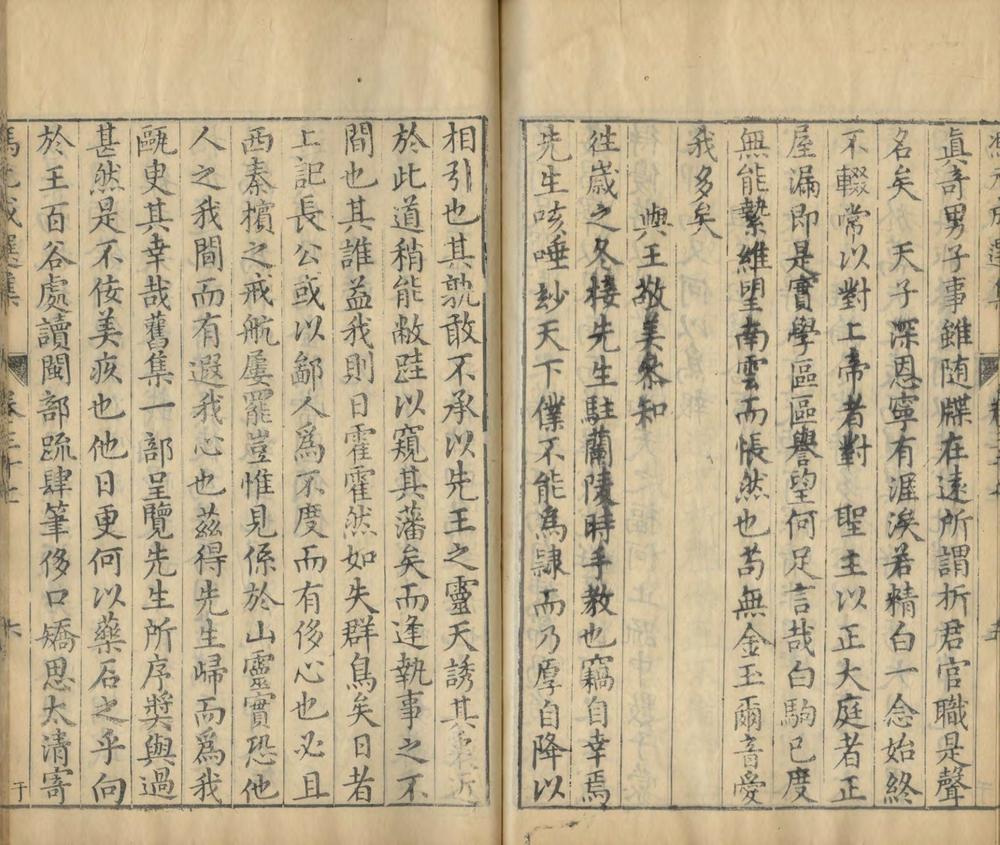 真奇男子事雖随牒在遠所謂折君官職是聲
名矣　天子　深恩寧有涯涘若精白一念始終
不輟常以對上帝者對　聖主以正大庭者正
屋漏即是實學區區譽望何足言哉白駒已度
無能縶維望南雲而悵然也苟無金玉爾音愛
我多矣
與王敬美叅知
徃歲之冬棲先生駐蘭陵時手教也竊自幸焉
先生咳唾玅天下僕不能為隸而乃厚自降以
相引也其孰敢不承以先王之靈天誘其衷近
於此道稍能敝跬以窺其藩矣而逢執事之不
間也其誰益我則日霍霍然如失群鳥矣日者
上記長公或以鄙人為不度而有侈心也必且
西秦擯之戒航屢罷豈惟見係於山靈實恐他
人之我間而有遐我心也茲得先生歸而為我
甌臾其幸哉舊集一部呈覽先生所序奬與過
甚然是不佞美疢也他日更何以藥石之乎向
於王百谷處讀閩部䟽肆筆侈口矯思太清寄
卷三十七
六